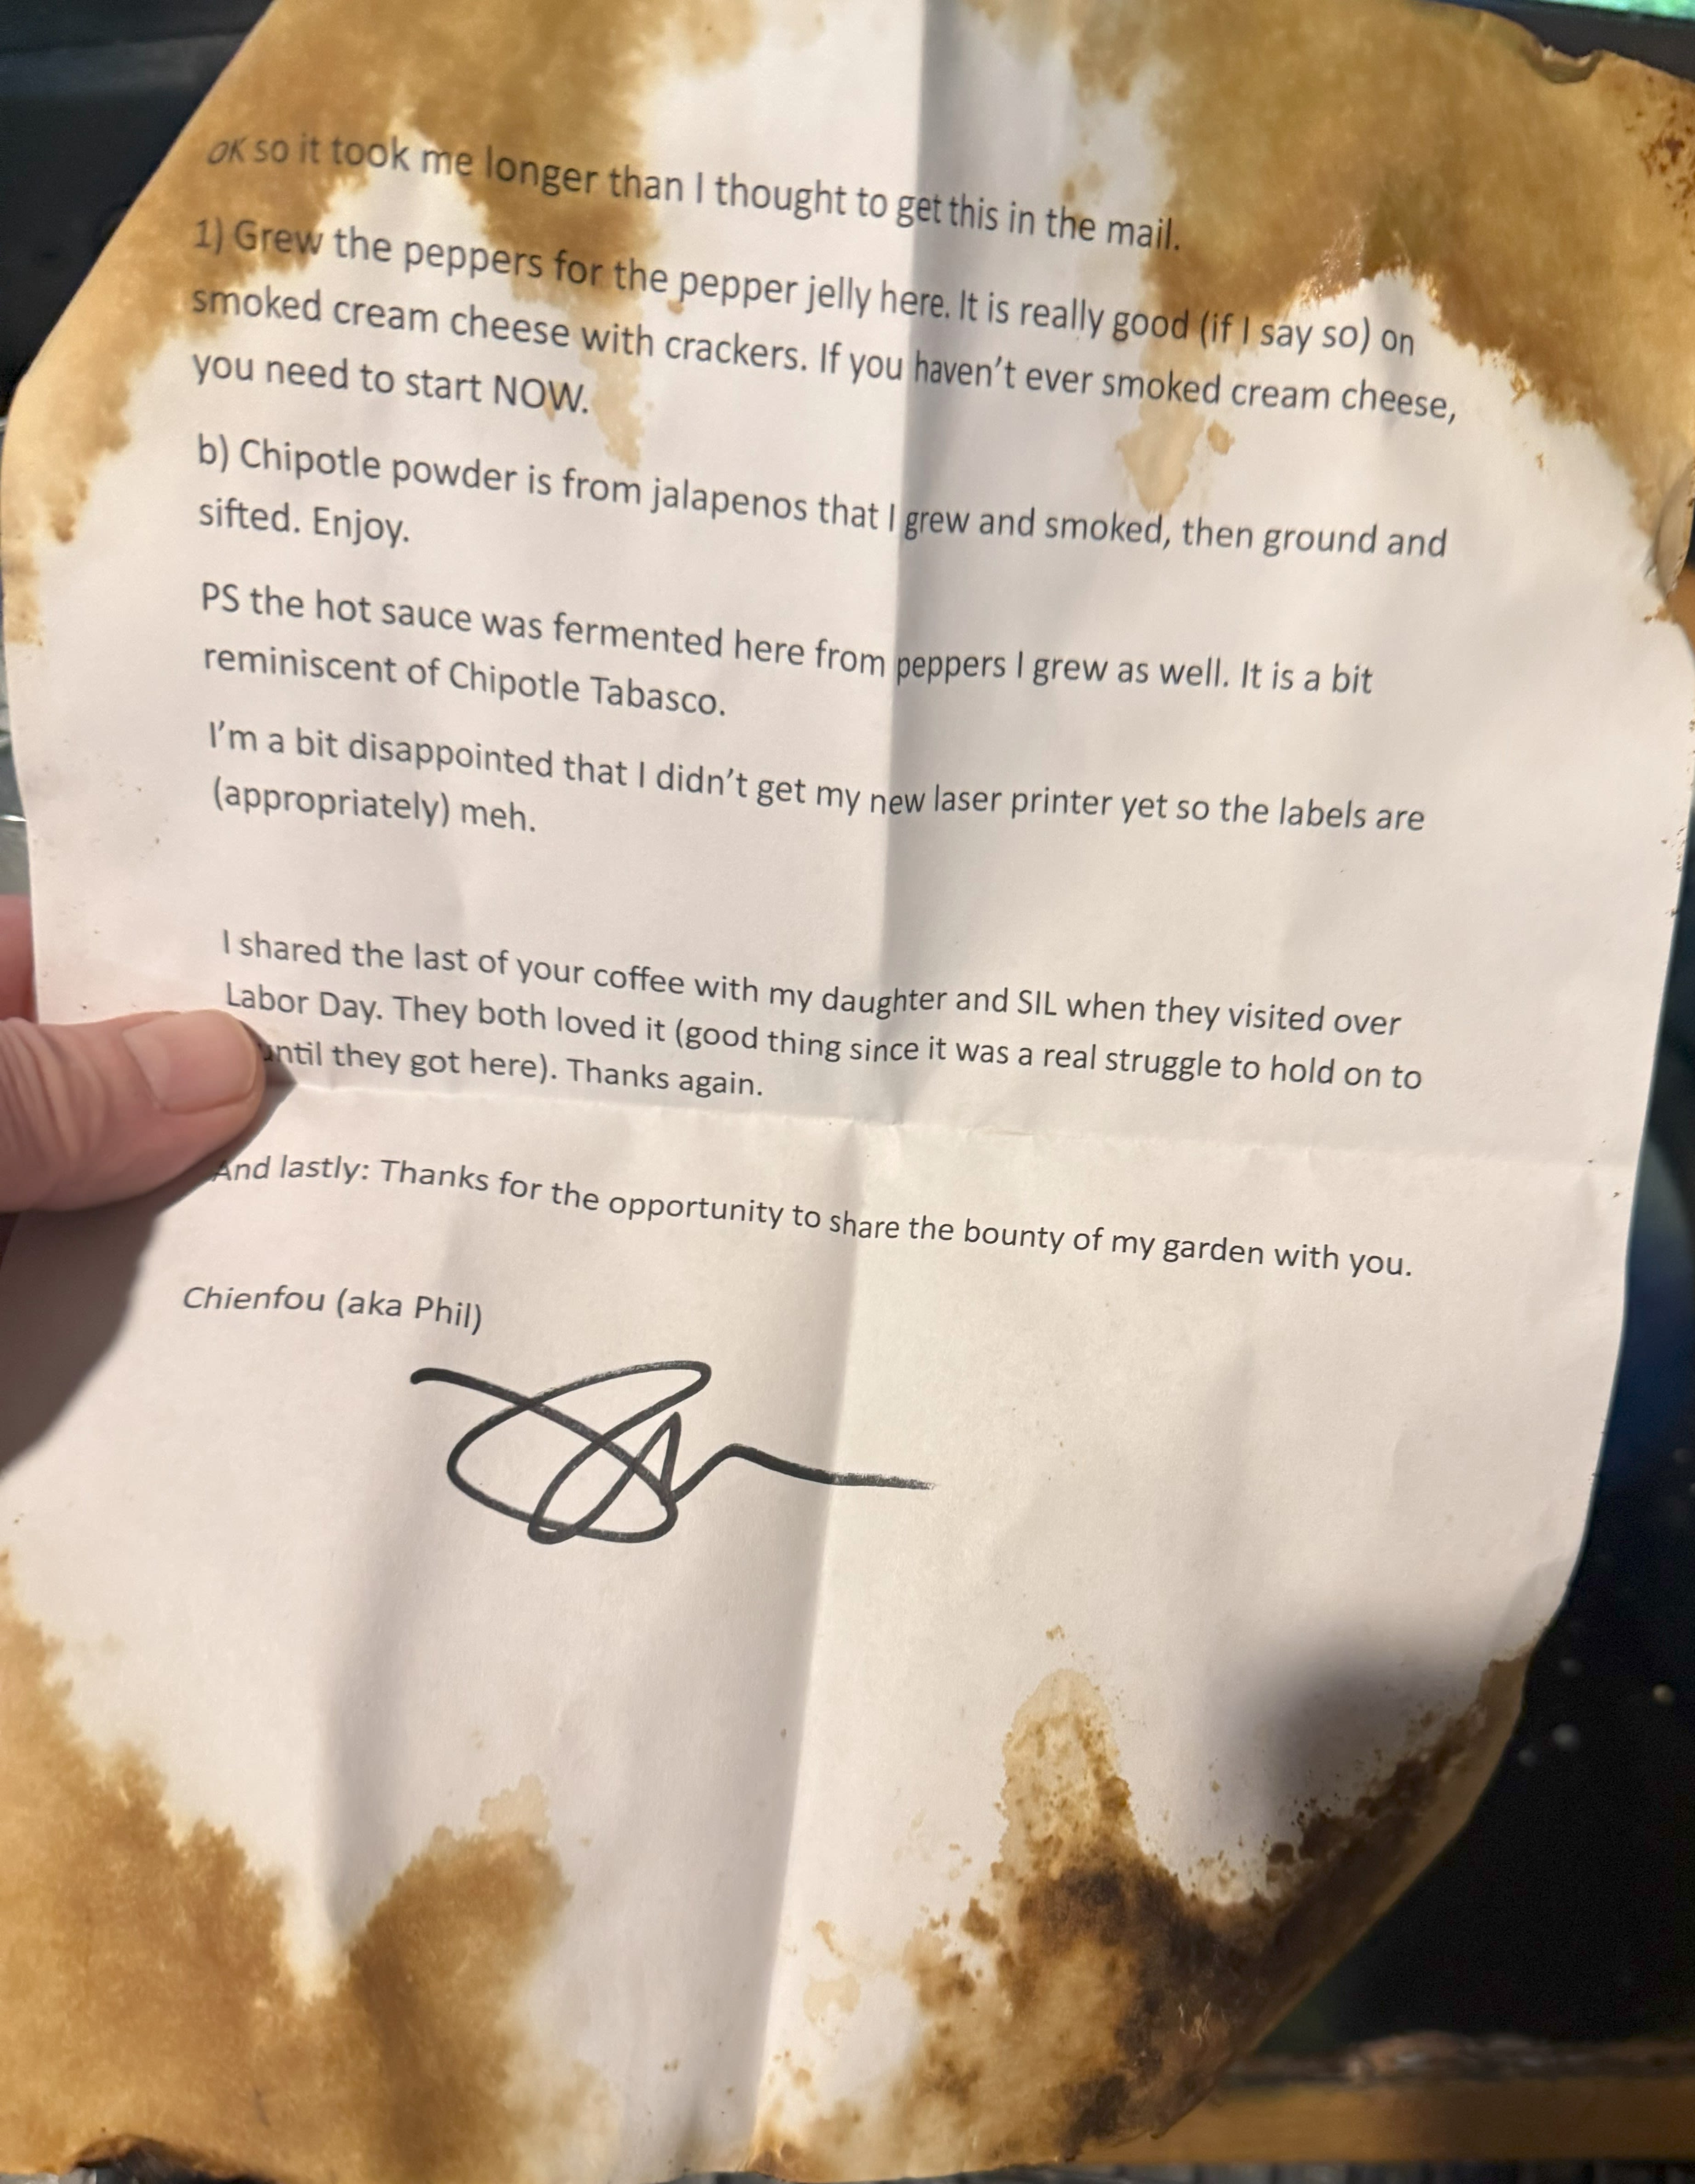 OK so it took me longer than I thought to get this in the mail.
1) Grew the peppers for the pepper jelly here. It is really good (if I say so) on
smoked cream cheese with crackers. If you haven't ever smoked cream cheese,
you need to start NOW.
b) Chipotle powder is from jalapenos that I grew and smoked, then ground and
sifted. Enjoy.
PS the hot sauce was fermented here from peppers I grew as well. It is a bit
reminiscent of Chipotle Tabasco.
I'm a bit disappointed that I didn't get my new laser printer yet so the labels are
(appropriately) meh.
I shared the last of your coffee with my daughter and SIL when they visited over
Labor Day. They both loved it (good thing since it was a real struggle to hold on to
until they got here). Thanks again.
And lastly: Thanks for the opportunity to share the bounty of my garden with you.
Chienfou (aka Phil)